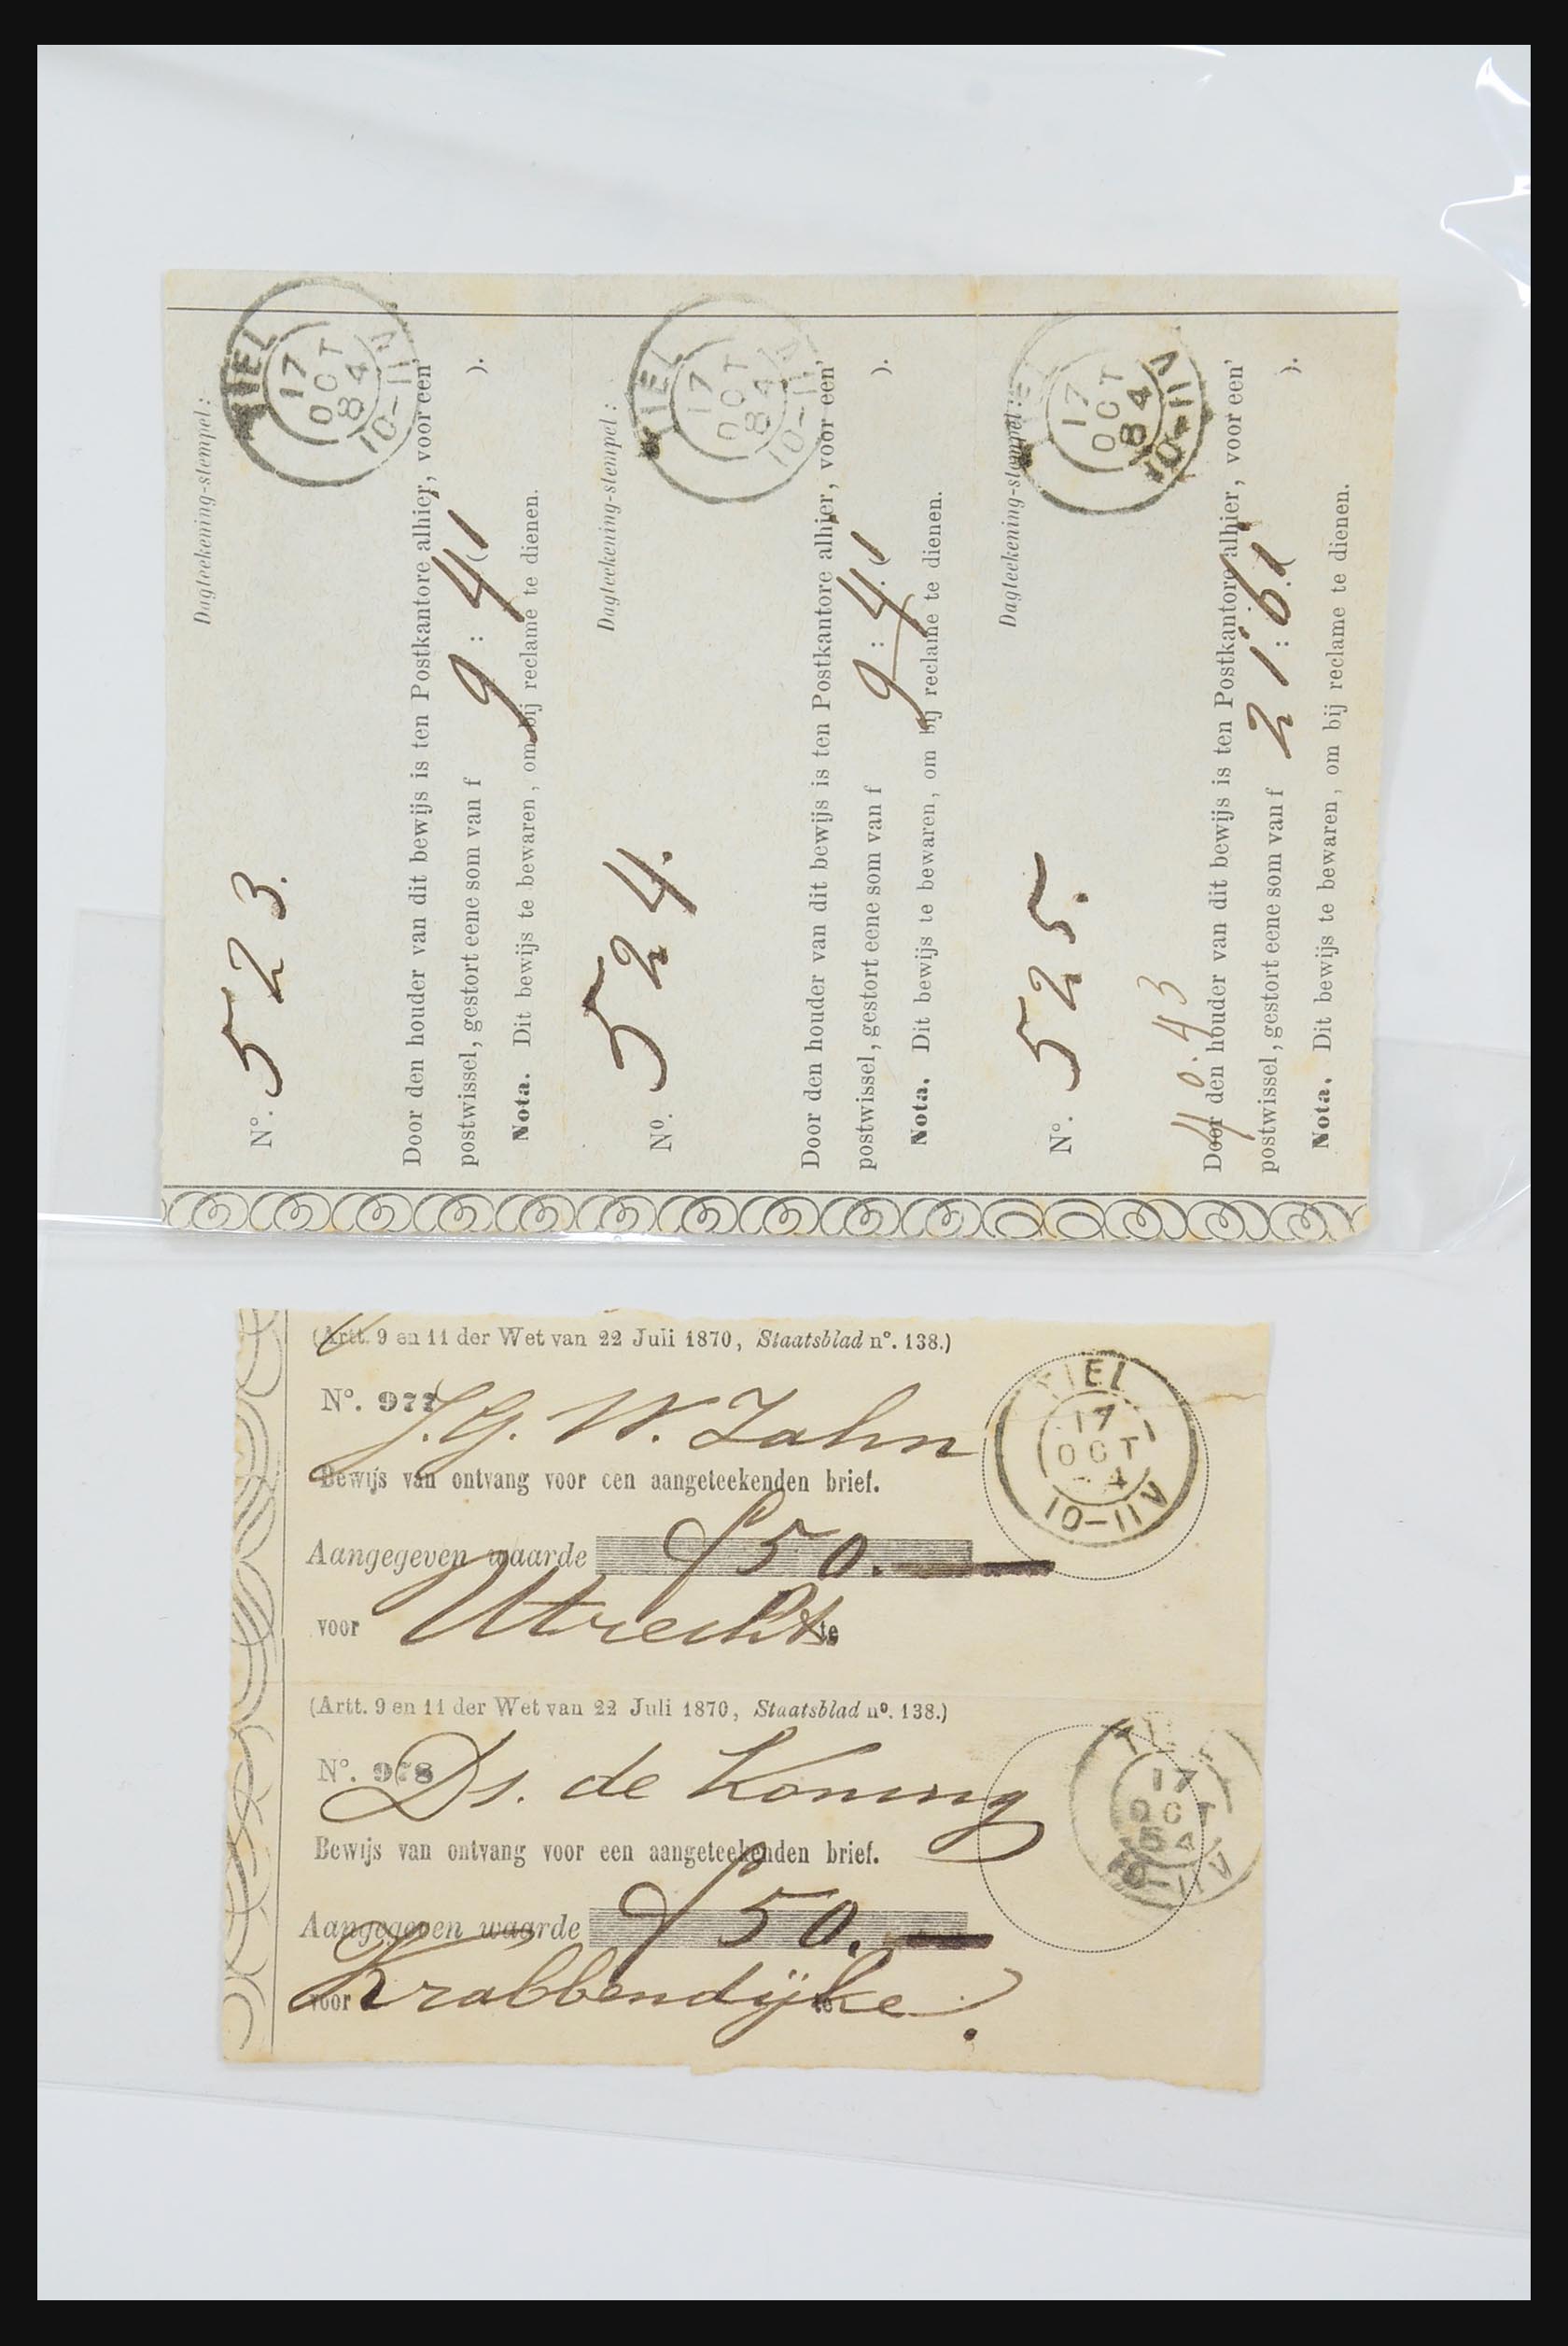 Dagteekening-stempel:
TIEL
17
OCT
84
10-11V
N°. 523.
Door den houder van dit bewijs is ten Postkantore alhier, voor een'
postwissel, gestort eene som van f 9:41 ( ).
Nota. Dit bewijs te bewaren, om bij reclame te dienen.
Dagteekening-stempel:
TIEL
17
OCT
84
10-11V
N°. 524.
Door den houder van dit bewijs is ten Postkantore alhier, voor een'
postwissel, gestort eene som van f 9:41 ( ).
Nota. Dit bewijs te bewaren, om bij reclame te dienen.
Dagteekening-stempel:
TIEL
17
OCT
84
10-11V
N°. 525.
40.43
Door den houder van dit bewijs is ten Postkantore alhier, voor een'
postwissel, gestort eene som van f 21:61 ( ).
Nota. Dit bewijs te bewaren, om bij reclame te dienen.
(Artt. 9 en 11 der Wet van 22 Juli 1870, Staatsblad n°. 138.)
TIEL
17
OCT
4
10-11V
N°. 977 J.G. W. Zahn
Bewijs van ontvang voor een aangeteekenden brief.
Aangegeven waarde f 50.
voor Utrecht te
(Artt. 9 en 11 der Wet van 22 Juli 1870, Staatsblad n°. 138.)
17
OCT
84
10-11V
N°. 978 Ds. de Koning
Bewijs van ontvang voor een aangeteekenden brief.
Aangegeven waarde f 50.
voor Krabbendijke. te